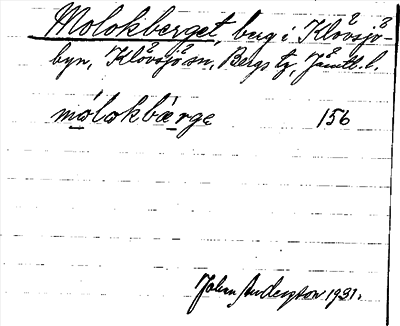 Molokberget, berg i Klövsjö-
byn, Klövsjö sn, Bergs tg, Jämtl. l.
mólokbærge 156
Johan Anderzton 1931.